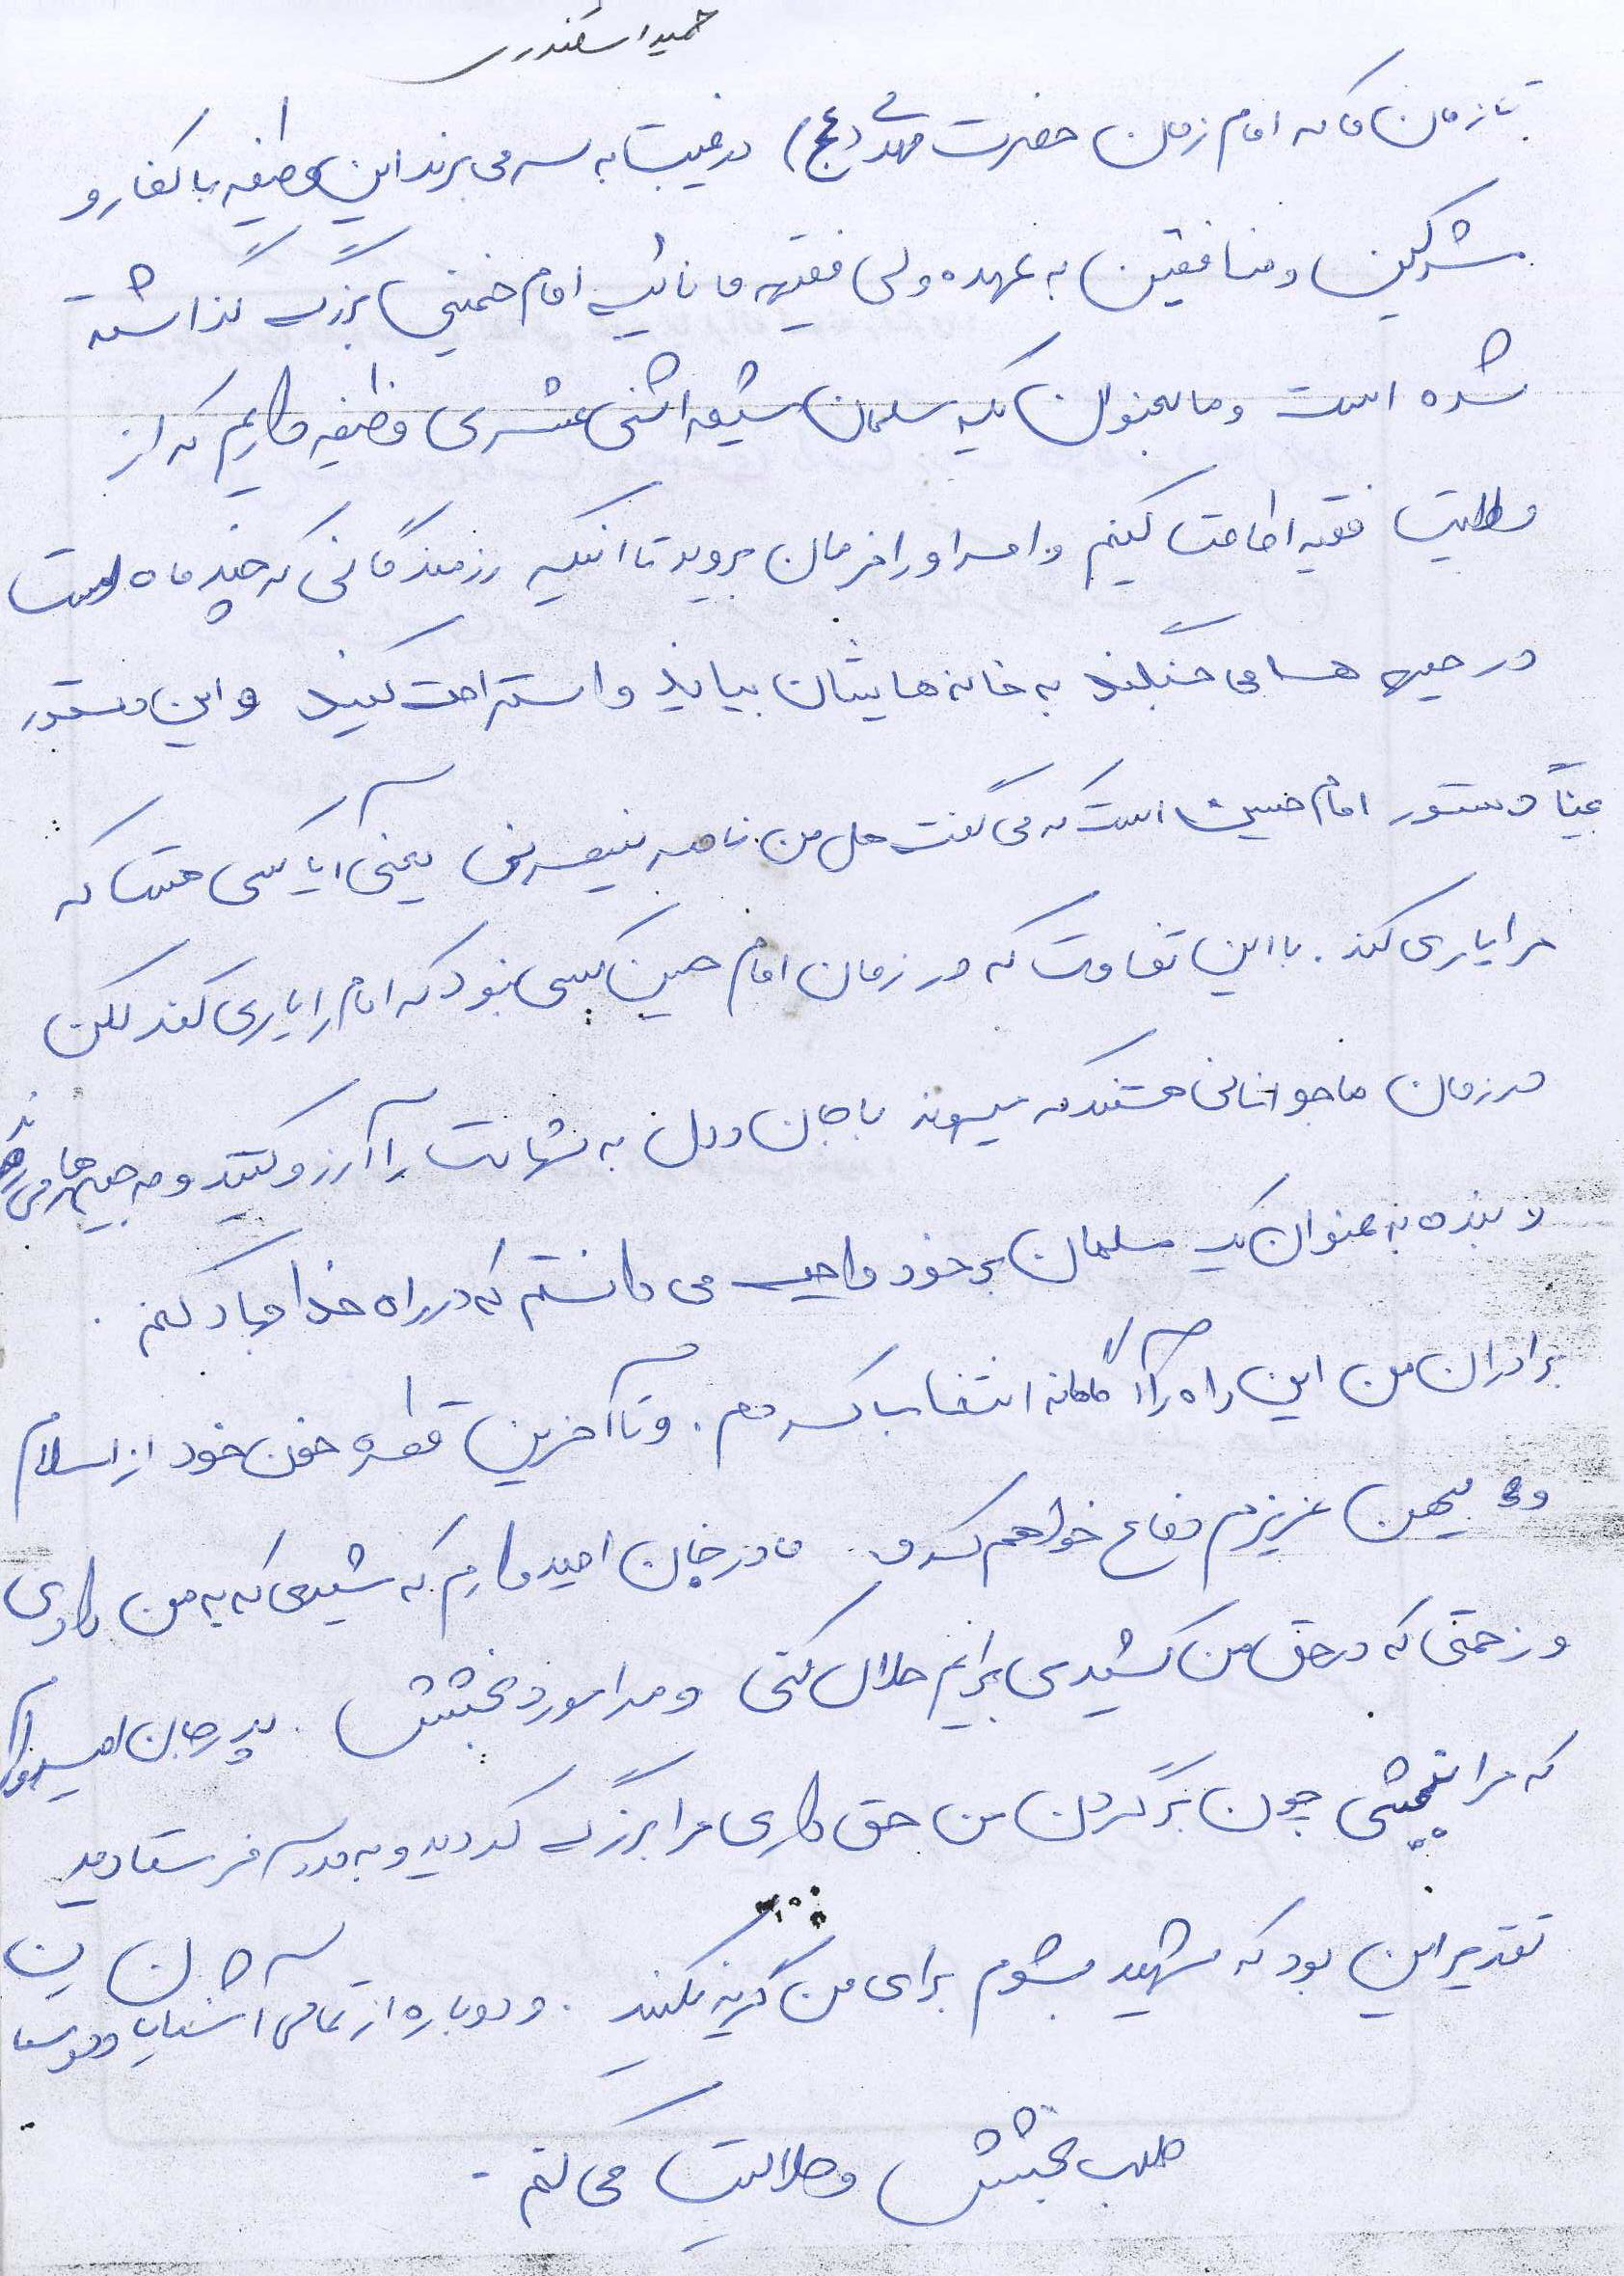 حمید اسکندری
تا زمانی که امام زمان حضرت مهدی (عج) در غیبت به سر می برند این وظیفه با کفار و
مشرکین و منافقین به عهده ولی فقیه ما نائب امام خمینی بزرگ گذاشته
شده است و ما بعنوان یک مسلمان شیعه اثنی عشری وظیفه داریم که از
ولایت فقیه اطاعت کنیم و امر او را فرمان بریم تا اینکه رزمندگانی که چند ماه است
در جبهه ها می جنگند به خانه هایشان بیایند و استراحت کنند و این دستور
عیناً دستور امام حسین است که می گفت هل من ناصر ینصرنی یعنی آیا کسی هست که
مرا یاری کند . با این تفاوت که در زمان امام حسین کسی نبود که امام را یاری کند لکن
در زمان ما جوانانی هستند که با جان و دل شهادت را آرزو کنند و به جبهه ها می روند
لا بنده به عنوان یک مسلمان بر خود واجب می دانستم که در راه خدا جهاد کنم .
برادران من این راه را آگاهانه انتخاب کردم . و تا آخرین قطره خون خود از اسلام
و میهن عزیزم دفاع خواهم کرد . مادر جان امیدوارم که شیری که به من دادی
و زحمتی که در حق من کشیدی برایم حلال کنی و مرا مورد بخشش . پدر جان امیدوارم
که مرا ببخشی چون بر گردن من حق داری مرا بزرگ کردید و به مدرسه فرستادید
تقدیر این بود که شهید بشوم برای من گریه نکنید . و دوباره از تمامی آشنایان و دوستان
طلب بخشش و حلالیت می کنم .